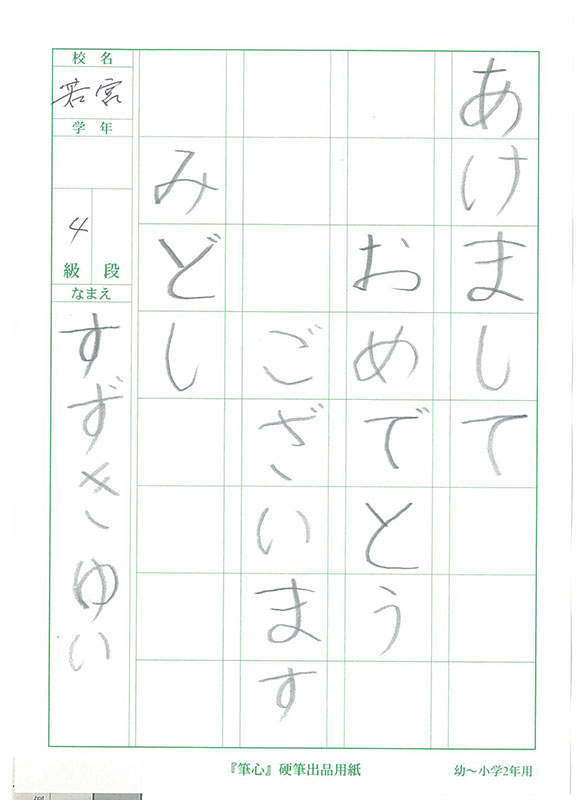 あけまして
おめでとう
ございます
みどし
校名
若宮
学年
4
級 段
なまえ
すずきゆい
『筆心』硬筆出品用紙
幼〜小学2年用